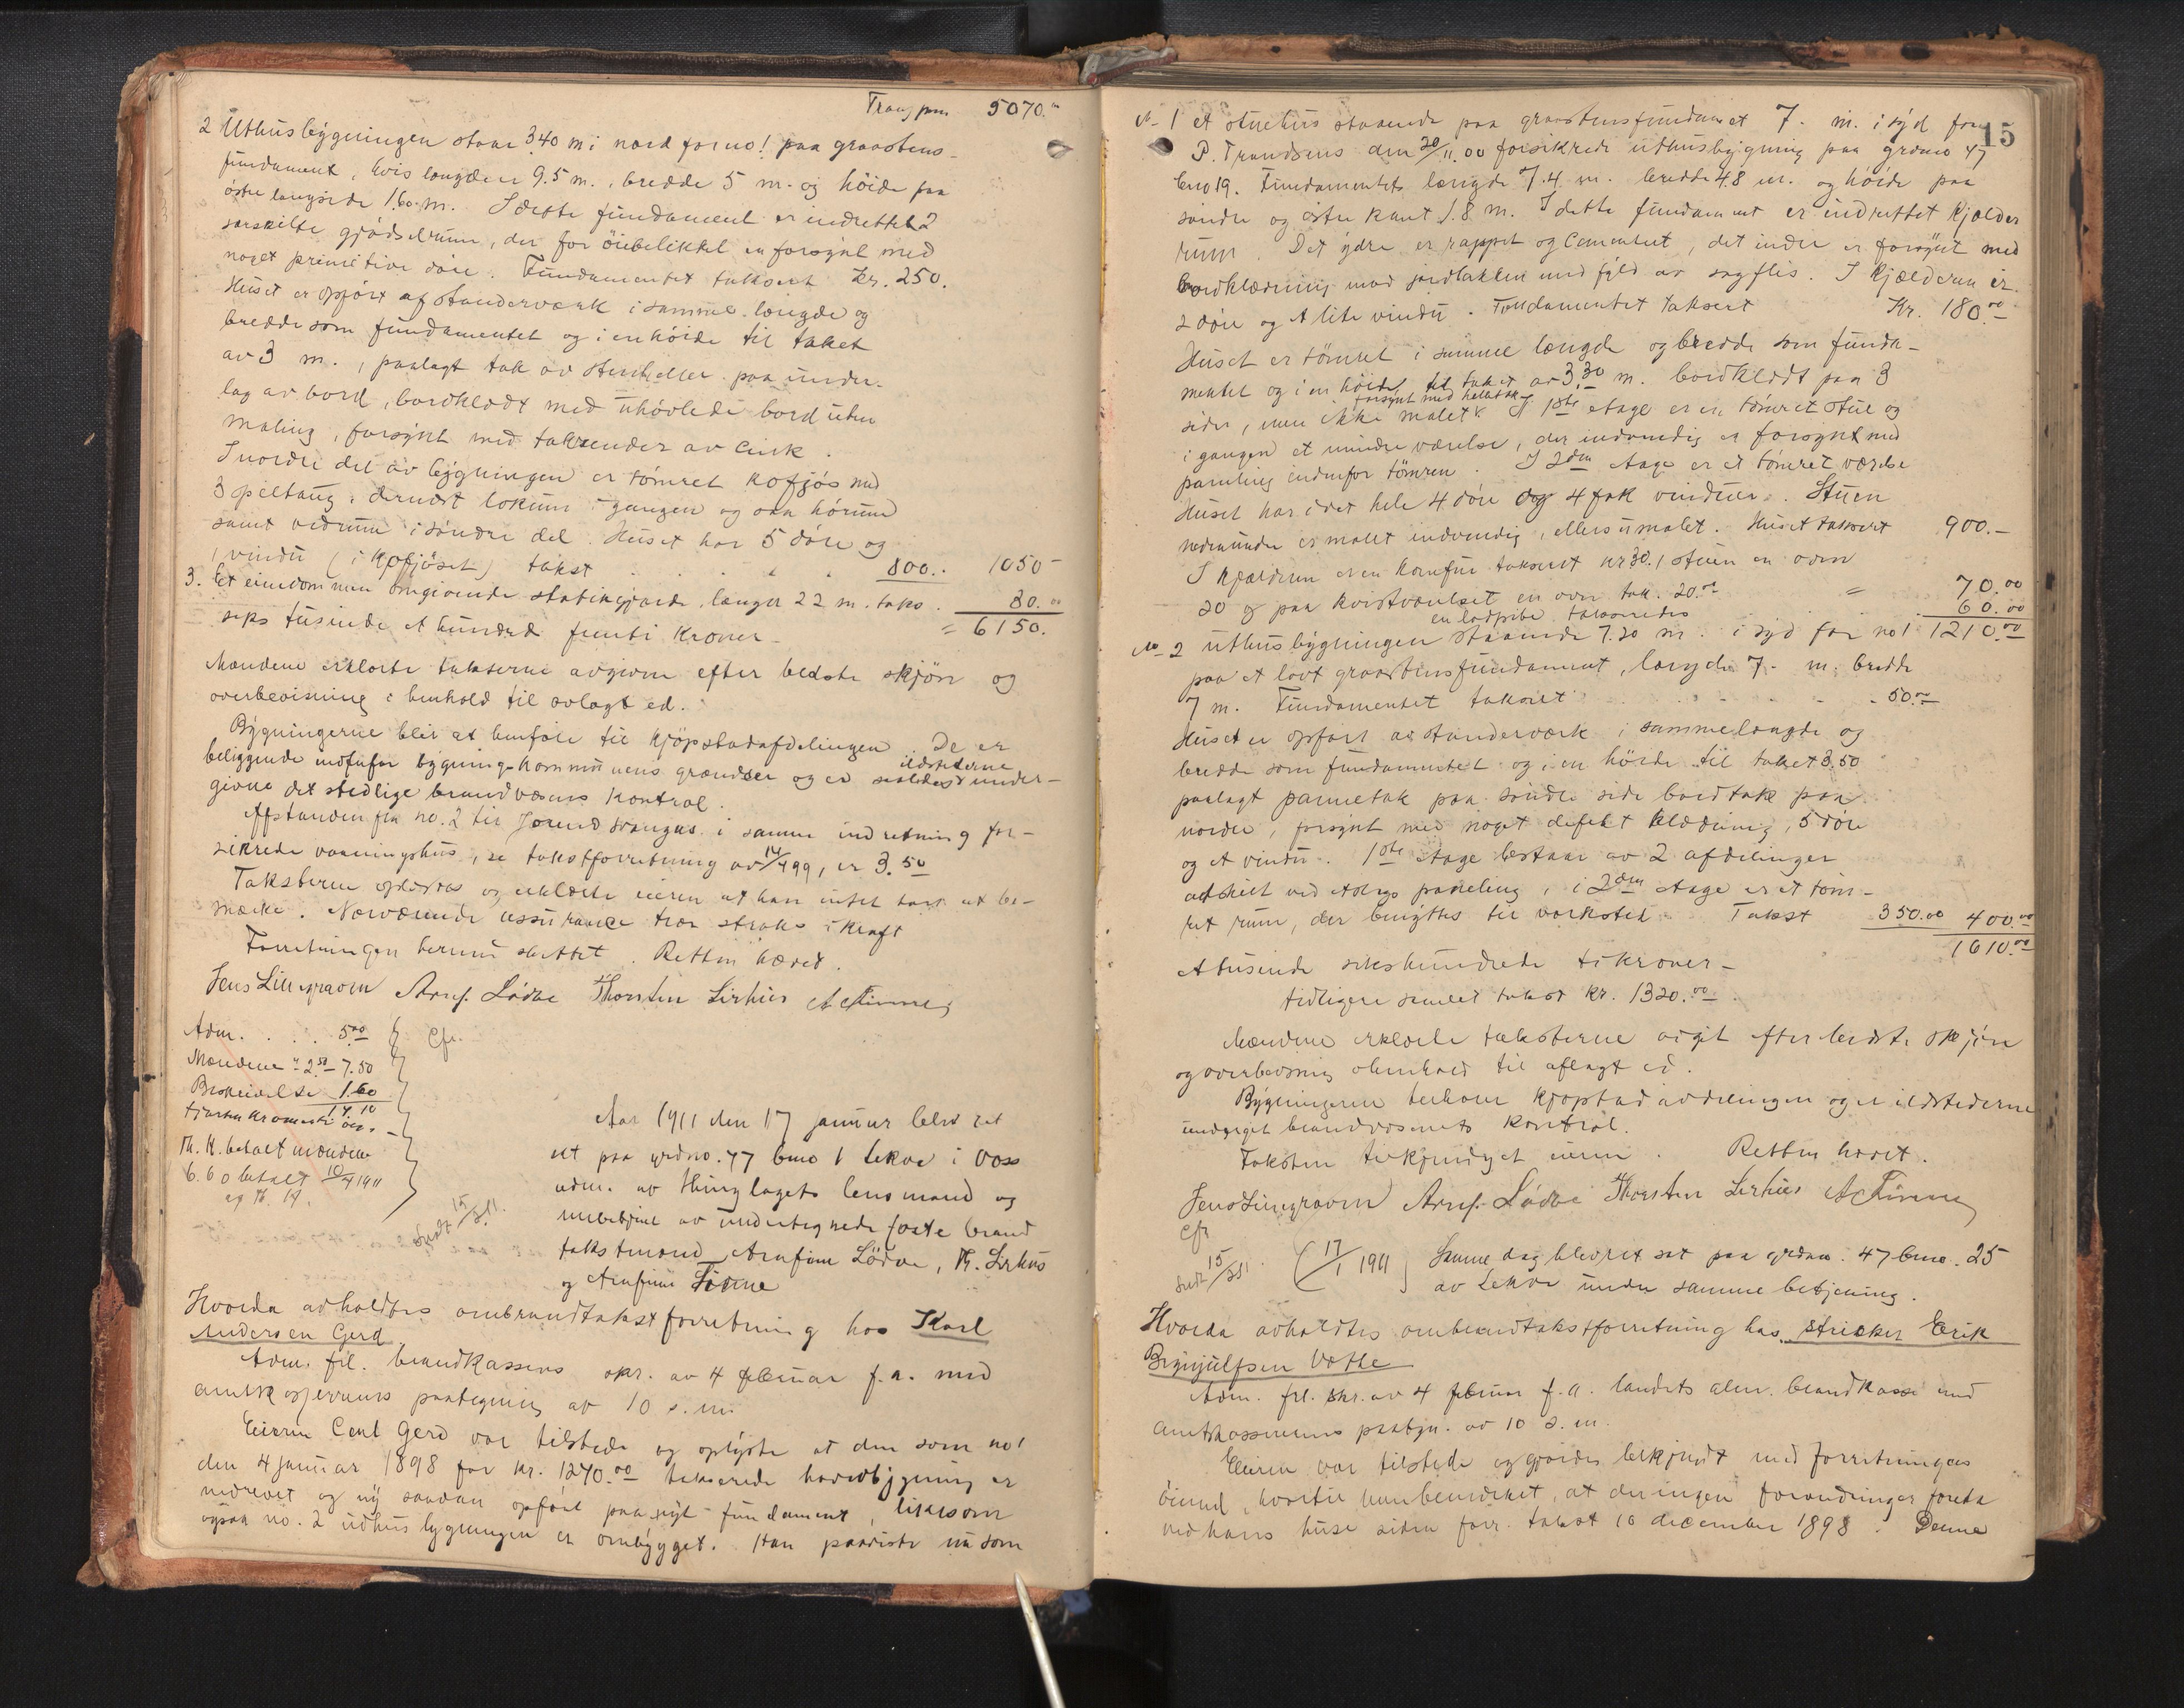 Transpor. 5070.
2 Uthusbygningen staar 3.40 m i nord for no 1 paa graastens-
fundament, hvis længde er 9.5 m., bredde 5 m. og höide paa
östre langside 1.60 m. I dette fundament er indrettet 2
særskilte gjödselrum, der for öiebelikket er forsynt med
noget primitive döre. Fundamentet taksert Kr. 250.
Huset er opfört af standerværk i samme længde og
bredde som fundamentet og i en höide til taket
av 3 m., paalagt tak av stenheller paa under-
lag av bord, bordklædt med uhövlede bord uten
maling, forsynt med takrender av cink.
I nordre del av bygningen er tömret kofjös med
3 spiltaug, dernæst lokum i gangen og saa hörum
samt vedrum i söndre del. Huset har 5 döre og
1 vindu (i kofjöset) takst 800. 1050 -
3. Et eiendommen omgivende stakitgjærde, længde 22 m. taks. 30.00
seks tusinde et hundred femti kroner - = 6150.
Mændene erklærte takserne avgivne efter bedste skjön og
overbevisning i henhold til avlagt ed.
Bygningerne blir at henföre til kjöpstadafdelingen. De er
beliggende indenfor bygningskommunens grændser og er ildstederne under-
givne det stedlige brandvæsens kontrol.
Afstanden fra no. 2 til Jorund Svangas i samme indretning for-
sikrede vaaningshus, se takstforretning av 14/4 99, er 3.50
Taksterne oplæstes og erklærte eieren at han intet hadde at be-
mærke. Nærværende assurance træ straks i kraft
Forretningen hermed sluttet. Retten hævet.
Jens Lillegraven Arnf. Lödve Thorsten Lirhus A Finne
Adm. . . . 5.00 Efr.
Mændene a 2.50 - 7.50
Beskrivelse 1.60
14.10
fjorten kroner ti öre. -
Th. K. betalt mændene
6.60 betalt 10/4 1911
af Th. K.
Sendt 15/3 11.
Aar 1911 den 17 januar blev ret
sat paa grdno. 47 bno 1 Lekve i Voss
adm. av thinglagets lensmand og
medbetjent av undertegnede faste brand
takstmænd Arnfinn Lödve, Th. Lirhus
og Arnfinn Finne
Hvorda avholdtes ombrandtakstforretning hos Karl
Andersen Gerd
Adm. frl. brandkassens skr. av 4 februar f.a. med
amtskasjererens paategning av 10 s.m.
Eieren Carl Gerd var tilstede og oplyste at den som no 1
den 4 januar 1898 for kr. 1270.00 takserede hovedbygning er
nedrevet og ny saadan opfört paa nyt fundament, likesom
ogsaa no. 2 udhusbygningen er ombygget. Han paaviste nu som
15
No 1 et stuehus staaende paa graastensfundamet 7. m. i syd for
P. Trondsens den 20/11.00 forsikrede uthusbygning paa grdno 47
bno 19. Fundamentets længde 7.4 m. bredde 4.8 m. og höide paa
söndre og östre kant 1.8 m. I dette fundament er indrettet kjælder
rum. Det ydre er rappet og cementert, det indre er forsynt med
bordklædning mod jordbakken med fyld av sagflis. I kjælderen er
2 döre og et lite vindu. Fundamentet taksert Kr. 180.00
Huset er tömret i samme længde og bredde som funda-
mentet og i en höide til taket av 3.30 m. bordklædt paa 3
sider, men ikke malet forsynt med helletak. I 1ste etage er en tömret stue og
i gangen et mindre værelse, der indvendig er forsynt med
paneling indenfor tömren. I 2den etage er et tömret værelse
Huset har i det hele 4 döre og 4 fak vinduer. Stuen
nedenunder er malet indvendig, ellers umalet. Huset taksert 900.-
I kjælderen er en komfur taksert kr 30. I stuen en ovn
20 og paa kvistværelset en ovn tak. 20.00 = 70.00
en ladpibe takseredes 60.00
No 2 uthusbygningen staaende 7.20 m. i syd for no 1 1210.00
paa et lavt graastensfundament, længde 7. m. bredde
7 m. Fundamentet taksert 50.00
Huset er opfört av standerværk i samme længde og
bredde som fundamentet og i en höide til taket 3.50
paalagt pannetak paa söndre side bordtak paa
nordre, forsynt med noget defekt klædning, 5 döre
og et vindu. 1ste etage bestaar av 2 afdelinger
adskilt ved et slags paneling, i 2den etage er et töm-
ret rum, der benyttes til verksted. Takst 350.00 400.00
1610.00
et tusinde sekshundrede ti kroner -
tidligere samlet takst kr. 1320.00
Mændene erklærte taksterne avgit efter bedste skjön
og overbevisning i henhold til aflagt ed.
Bygningerne henhörer kjöpstadavdelingen og er ildstederne
undergit brandvæsenets kontrol.
Taksten bekjendtgjort eieren. Retten hævet.
Jens Lillegraven Arnf. Lödve Thorsten Lirhus A Finne
Efr
Sendt 15/3 11. (17/1 1911) Samme dag blev ret sat paa grdno. 47 bno. 25
av Lekve under samme betjening.
Hvorda avholdtes ombrandtakstforretning hos strieker Eerik
Brynjulfsen Væthe
Adm. frl. skr. av 4 februar f.a. landets alm. brandkasse med
amtskassererens paategn. av 10 s.m.
Eieren var tilstede og gjordes bekjendt med forretningens
öiemed, hvortil han bemerket, at der ingen forandringer foreta
ved hans huse siden forr. takst 16 december 1898. Denne